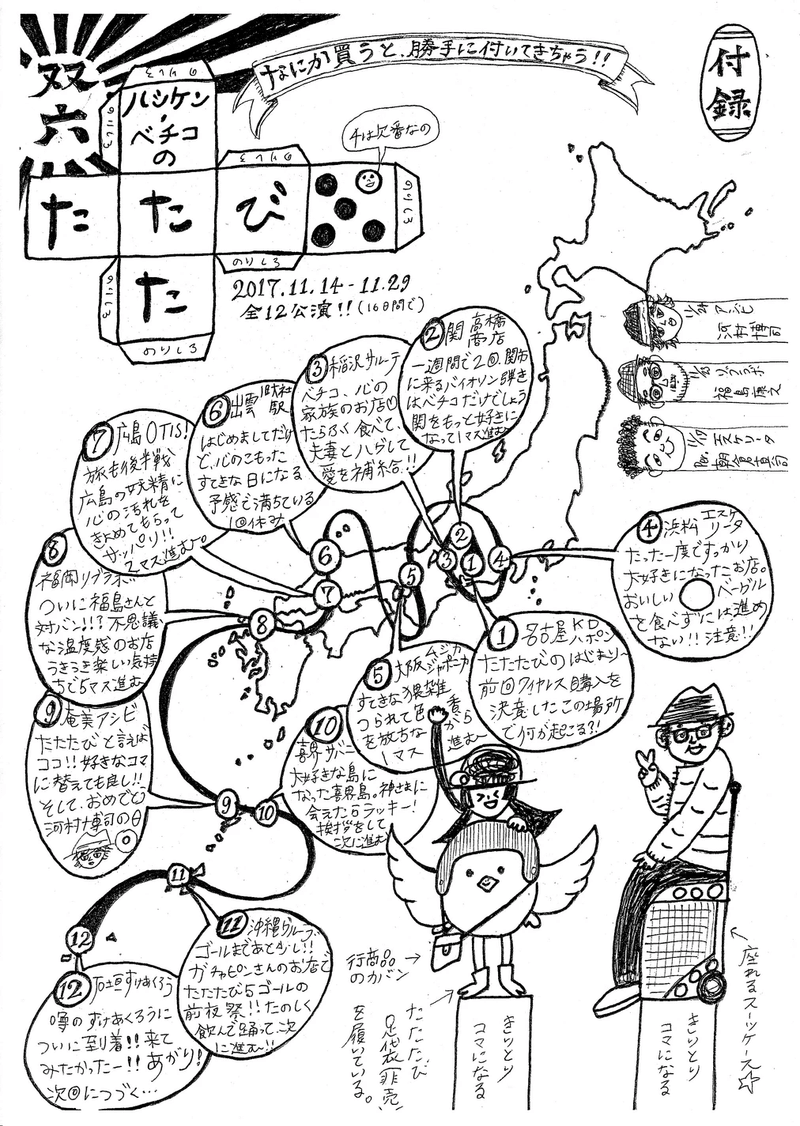 双六
付録
なにか買うと、勝手に付いてきちゃう!!
ハシケン
ベチコ
の
た
た
び
た
4は欠番なの
のりしろ
のりしろ
のりしろ
のりしろ
のりしろ
のりしろ
のりしろ
2017.11.14-11.29
全12公演!!(16日間で)
②関 高橋商店
一週間で2回、関市
に来るバイオリン弾き
はベチコだけでしょう
関をもっと好きに
なって1マス進む
③稲沢サルーテ
ベチコ、心の
家族のお店♡
たらふく食べて、
夫妻とハグして
愛を補給!!
⑥出雲 財社駅
はじめましてだけ
ど、心のこもった
すてきな日になる
予感で満ちている
1回休み
⑦広島OTIS!
旅も後半戦
広島の妖精に
心の汚れを
きよめてもらって
サッパリ!!
2マス進む〜
⑧福岡リブラボ
ついに福島さんと
対バン!!?不思議
な温度感のお店
うきうき楽しい気持
ちで5マス進む
④浜松エスケリータ
たった一度ですっかり
大好きになったお店。
おいしい ベーグル
を食べずには進め
ない!!注意!!
①名古屋KDハポン
たたたびのはじまり〜
前回ワイヤレス購入を
決意したこの場所
で何が起こる?!
⑤大阪ムジカジャポニカ
すてきな猥雑
つられて色
を放ちな
香
がら
1マス
進む〜
⑨奄美アシビ
たたたびと言えば
ココ!!好きなコマ
に替えても良し!!
そして、おめでとう
河村博司の日
⑩喜界サバニ
大好きな島に
なった喜界島。神さまに
会えたらラッキー!
挨拶をして
次に進む
⑪沖縄グルーブ
ゴールまであと少し!!
ガチャピンさんのお店で
たたたび5ゴールの
前夜祭!!たのしく
飲んで踊って、次
に進む〜!!
⑫石垣すけあくろう
噂のすけあくろうに
ついに到着!!来て
みたかったー!!あがり!
次回につづく…
1
2
3
4
5
6
7
8
9
10
11
12
アシビ
河村博司
福島康之
エスケリータ
行商品
のカバン
たたたび
足袋(非売)
を履いている。
きりとり
コマになる
きりとり
コマになる
座れるスーツケース☆